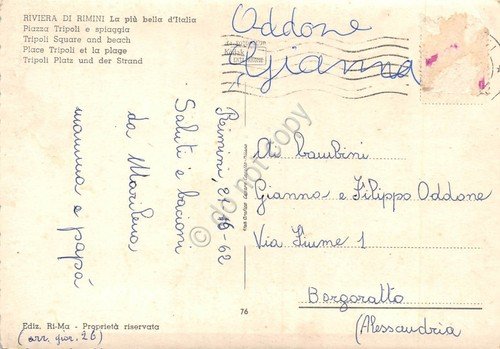 RIVIERA DI RIMINI La più bella d'Italia
Piazza Tripoli e spiaggia
Tripoli Square and beach
Place Tripoli et la plage
Tripoli Platz und der Strand
Oddone
Gianna
Kodak
Rimini, 21-
-62
Saluti e bacioni
da Marilena
mamma e papà
Ai bambini
Gianna e Filippo Oddone
Via Fiume 1
Borgoratto
(Alessandria)
76
Ediz. Ri-Ma - Proprietà riservata
(arr. gior. 26)
do not copy